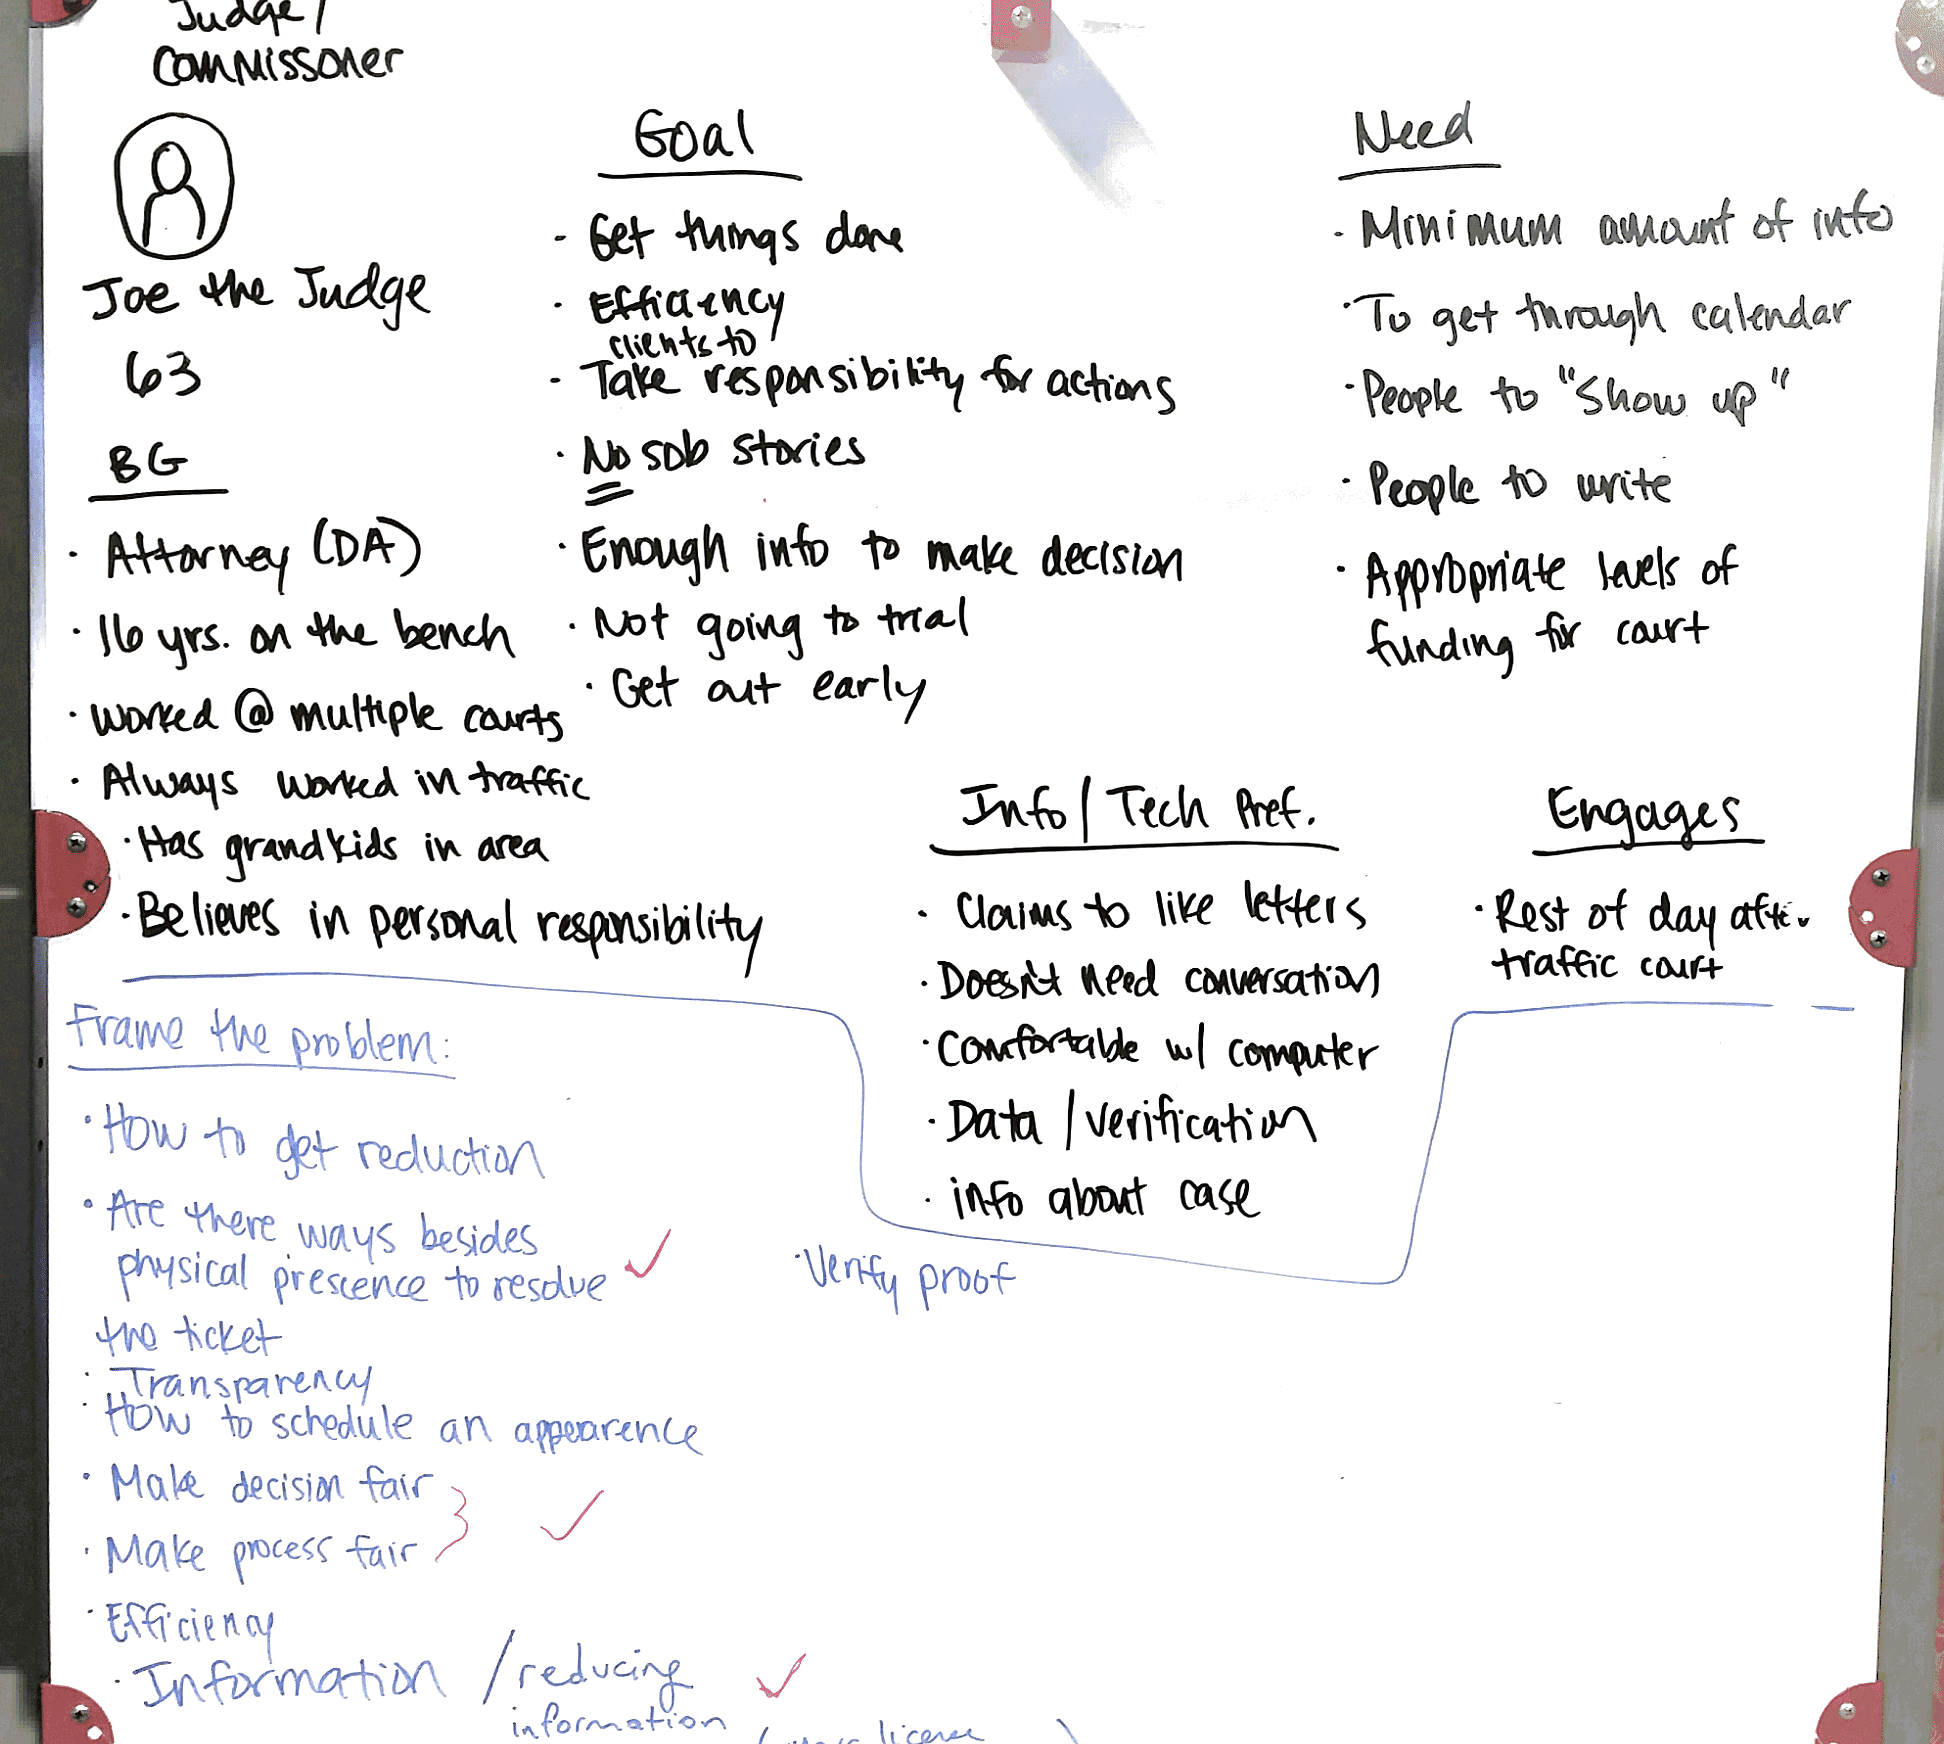 Judge/
Commissoner
Joe the Judge
63
BG
· Attorney (DA)
· 16 yrs. on the bench
· Worked @ multiple courts
· Always worked in traffic
· Has grandkids in area
· Believes in personal responsibility
Goal
- Get things done
· Efficiency
clients to
· Take responsibility for actions
· No sob stories
· Enough info to make decision
· Not going to trial
· Get out early
Need
· Minimum amount of info
· To get through calendar
· People to "Show up"
· People to write
· Appropriate levels of
funding for court
Info/Tech Pref.
· Claims to like letters
· Doesn't need conversation
· Comfortable w/ computer
· Data/verification
· info about case
Engages
· Rest of day after
traffic court
Frame the problem:
· How to get reduction
· Are there ways besides
physical prescence to resolve ✓
the ticket
· Transparency
· How to schedule an appearence
· Make decision fair
· Make process fair ✓
· Efficiency
· Information / reducing ✓
information
license
· Verify proof